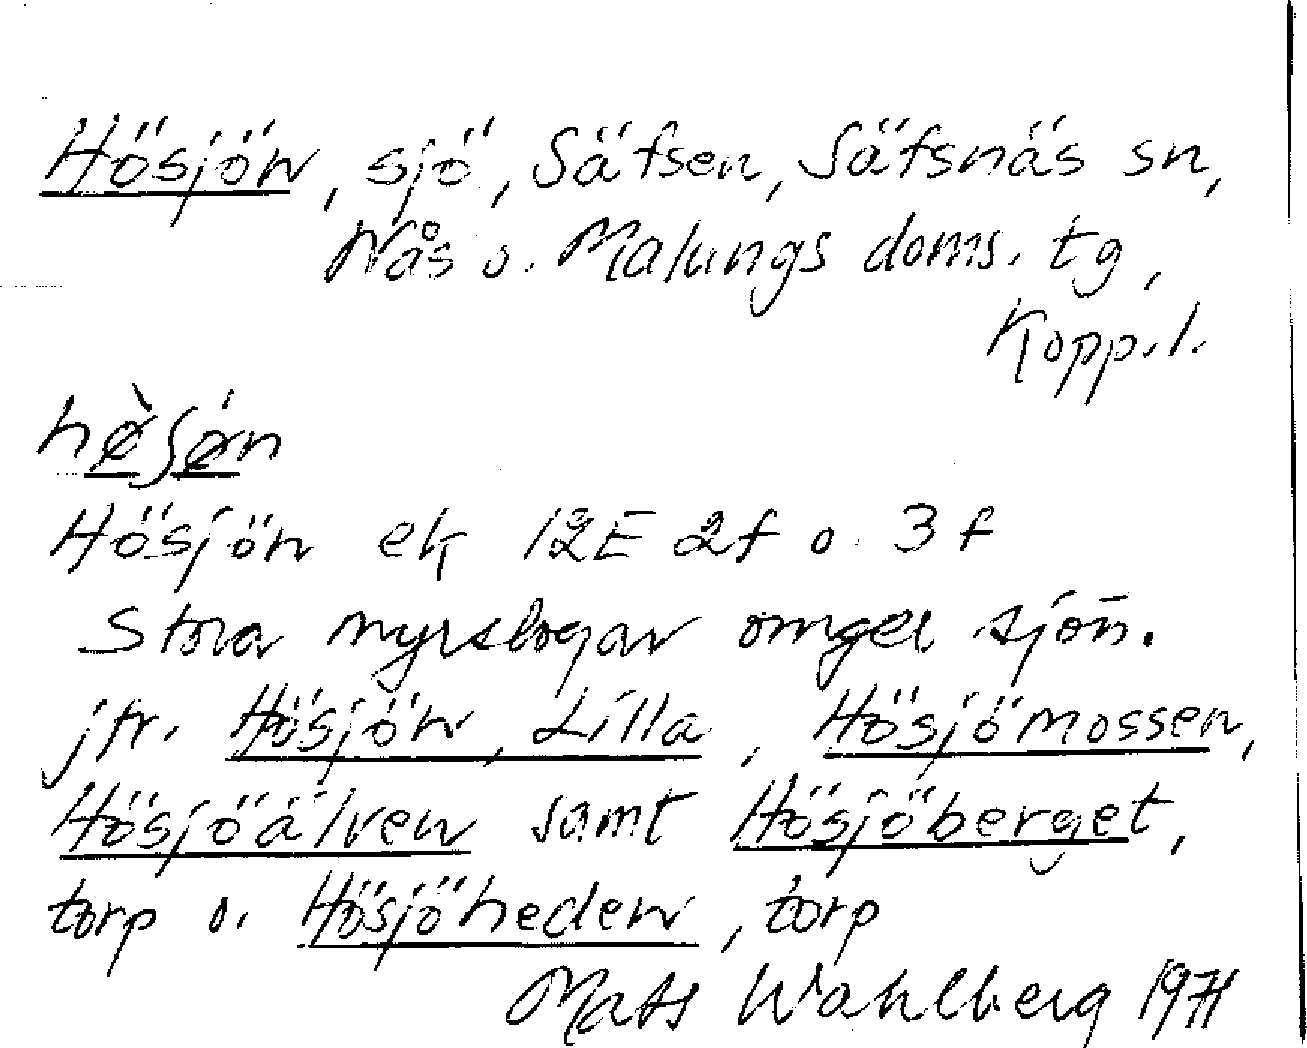 Hösjön, sjö, Säfsen, Säfsnäs sn,
Nås o. Malungs doms. tg,
Kopp. l.
hø̀ʃǿn
Hösjön ek 12E 2f o 3f
Stora myrslogar omger sjön.
jfr. Hösjön, Lilla, Hösjömossen,
Hösjöälven samt Hösjöberget,
torp o. Hösjöheden, torp
Mats Wahlberg 1971